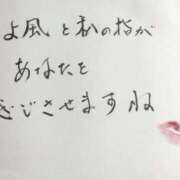 よ風と私の指が
あなたを
ぎじさせますね